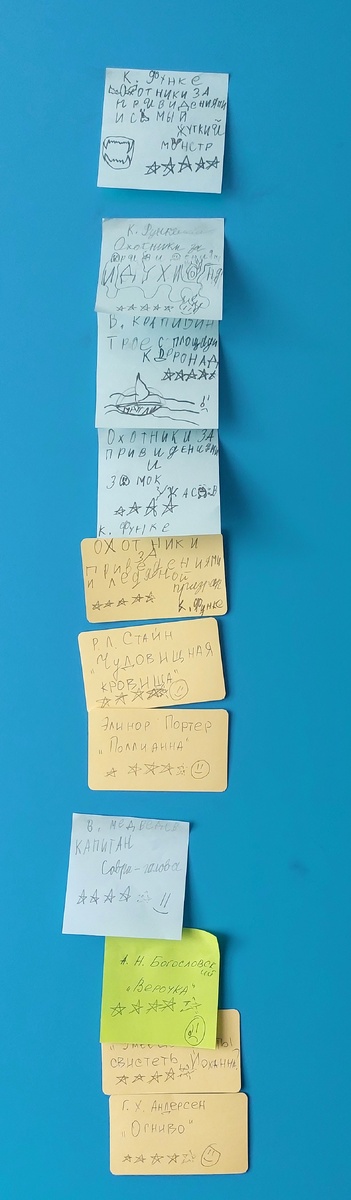 К. ФУНКЕ
ОХОТНИКИ ЗА
ПРИВИДЕНИЯМИ
И САМЫЙ
ЖУТКИЙ
МОНСТР
К. Функе
Охотники за
И ДУХИ ОГНЯ
В. КРАПИВИН
ТРОЕ С ПЛОЩАДИ
КАРРОНАД
ОХОТНИКИ ЗА
ПРИВИДЕНИЯМИ
И
ЗАМОК
УЖАСОВ
К. ФУНКЕ
ОХОТНИКИ
ЗА
привидениями
и ледяной
призрак
К. Функе
Р.Л. СТАЙН
"ЧУДОВИЩНАЯ
КРОВИЩА"
Элинор Портер
"Поллианна"
В. МЕДВЕДЕВ
КАПИТАН
Соври-голова
А. Н. Богословск
ий
"Верочка"
свистеть Йоханна
Г. Х. Андерсен
"Огниво"